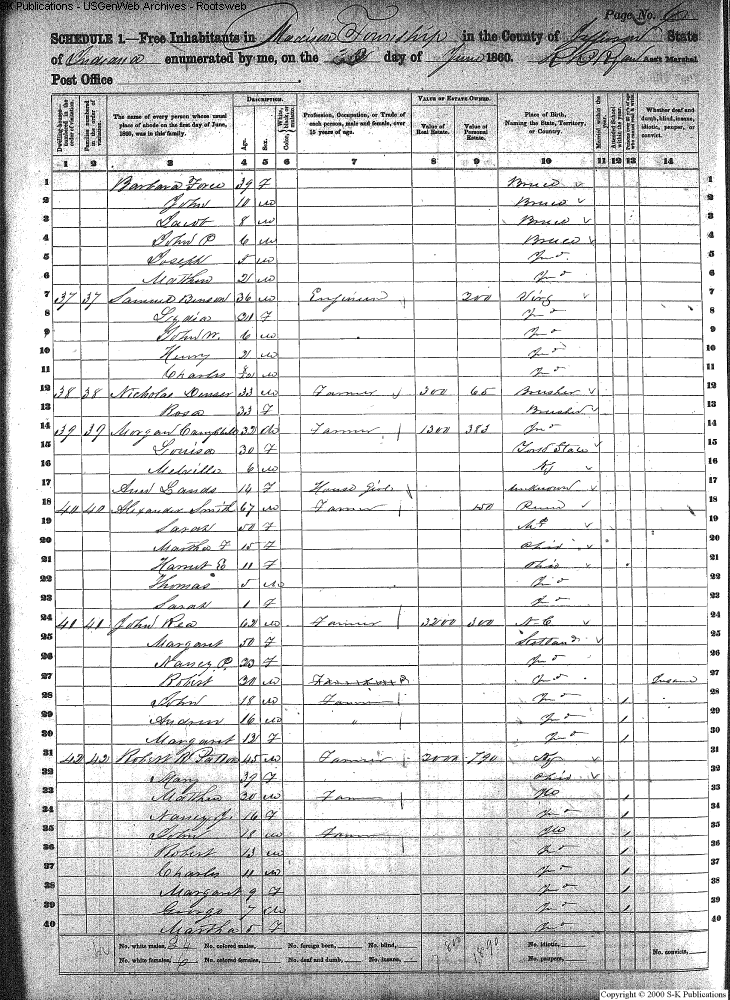 S-K Publications - USGenWeb Archives - Rootsweb
Page No. 6
SCHEDULE 1.—Free Inhabitants in Township in the County of Jefferson State
of Indiana enumerated by me, on the day of June 1860. Ass't Marshal
Post Office
Dwelling-houses numbered in the order of visitation.
Families numbered in the order of visitation.
The name of every person whose usual place of abode on the first day of June, 1860, was in this family.
DESCRIPTION.
Age.
Sex.
Color, White, black, or mulatto.
Profession, Occupation, or Trade of each person, male and female, over 15 years of age.
VALUE OF ESTATE OWNED.
Value of Real Estate.
Value of Personal Estate.
Place of Birth, Naming the State, Territory, or Country.
Married within the year.
Attended School within the year.
Persons over 20 y'rs of age who cannot read & write.
Whether deaf and dumb, blind, insane, idiotic, pauper, or convict.
1 2 3 4 5 6 7 8 9 10 11 12 13 14
1 Barbara 39 F 1
2 John 10 m 2
3 Jacob 8 m 3
4 John P 6 m 4
5 Joseph m Ind 5
6 2 m Ind 6
7 37 37 Samuel Benson 36 m Engineer 200 Virg 7
8 Lydia 21 F Ind 8
9 John W. 6 m Ind 9
10 Henry 2 m Ind 10
11 Charles m Ind 11
12 38 38 Nicholas 33 m Farmer 300 65 12
13 Rosa 33 F 13
14 39 39 Morgan Campbell 32 m Farmer 1300 383 Ind 14
15 Louisa 30 F 15
16 Melville 6 m Ky 16
17 Ann Lands 14 F House Girl unknown 17
18 40 40 Alexander Smith 67 m Farmer 150 Penn 18
19 Sarah 50 F 19
20 Martha F 15 F Ohio 20
21 Harriet E 11 F Ohio 21
22 Thomas 5 m Ind 22
23 Sarah 1 F Ind 23
24 41 41 John Rea 62 m Farmer 3200 300 N-C 24
25 Margaret 50 F Scotland 25
26 Nancy P. 23 F Ind 26
27 Robert 30 m Ind Insane 27
28 John 18 m Farmer Ind 28
29 Andrew 16 m " Ind 29
30 Margaret 12 F Ind 30
31 42 42 Robert W Patton 45 m Farmer 3000 790 Ky 31
32 Mary 39 F Ohio 32
33 20 m Farmer 33
34 Nancy J. 16 F Ind 34
35 John 18 m Farmer 35
36 Robert 13 m Ind 36
37 Charles 11 m Ind 37
38 Margaret 9 F Ind 38
39 George 7 m Ind 39
40 Martha 5 F Ind 40
No. white males, 24 No. colored males, No. foreign born, No. blind, No. idiotic, No. convicts,
No. white females, No. colored females, No. deaf and dumb, No. insane, No. paupers,
7800 1890
Copyright © 2000 S-K Publications